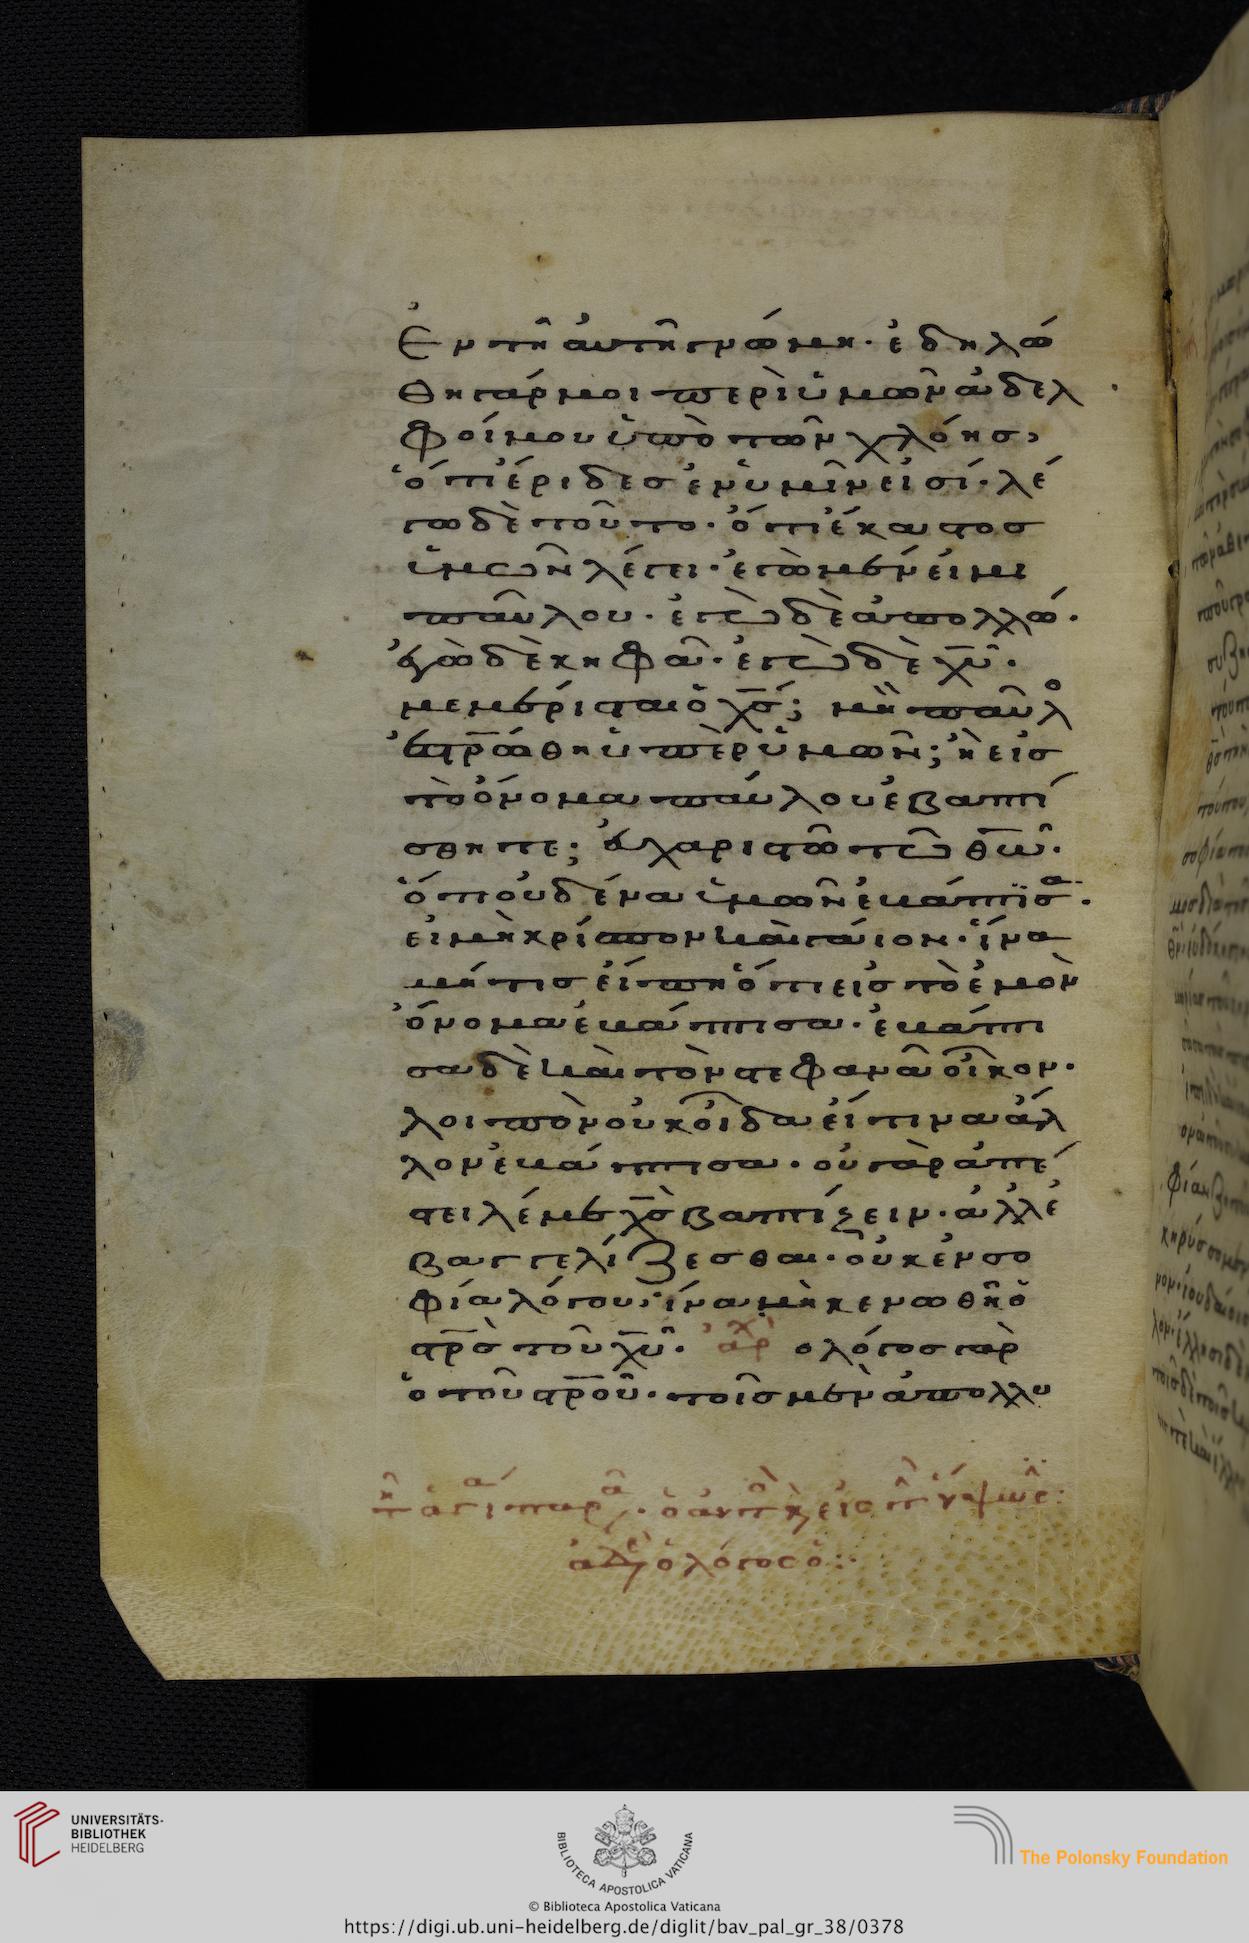 Ἐν τῆ αυτῆ γνώμη· ἐδηλώ
θη γάρ μοι περὶ ὑμῶν ἀδελ
φοί μου ὑπὸ τῶν χλόης,
ὅτι ἔριδες ἐν ὑμῖν εἰσί· λέ
γω δὲ τοῦτο· ὅτι ἕκαστος
ὑμῶν λέγει· ἐγὼ μέν εἰμι
παύλου· ἐγὼ δὲ ἀπολλώ·
ἐγὼ δὲ κηφᾶ· ἐγὼ δὲ χ̅υ̅·
μεμέρισται ὁ χ̅ς̅; μὴ παῦλο
ἐστρ̅ώθη ὑπὲρ ὑμῶν; ἢ εἰς
τὸ ὄνομα παύλου ἐβαπτί
σθητε; εὐχαριστῶ τῶ θ̅ω̅·
ὅτι οὐδένα ὑμῶν ἐβάπτισα·
εἰ μὴ κρίσπον καὶ γάϊον· ἵνα
μή τις εἴπη ὅτι εἰς τὸ ἐμὸν
ὄνομα ἐβάπτισα· ἐβάπτι
σα δὲ καὶ τὸν στεφανᾶ οἶκον·
λοιπὸν οὐκ οἶδα εἴ τινα ἄλ
λον ἐβάπτισα· οὐ γὰρ ἀπέ
στειλέ με χ̅ς̅ βαπτίζειν· ἀλλ' εὐ
βαγγελίζεσθαι· οὐκ ἐν σο
φία λόγου, ἵνα μὴ κενωθῆ ὁ
στρ̅ὸς τοῦ χ̅υ̅· ἀρχ ο λόγος γὰρ
ὁ τοῦ στρ̅οῦ· τοῖς μὲν ἀπολλυ
ἀδελφ ὁ λόγος ὁ:
UNIVERSITÄTS-
BIBLIOTHEK
HEIDELBERG
BIBLIOTECA APOSTOLICA VATICANA
The Polonsky Foundation
© Biblioteca Apostolica Vaticana
https://digi.ub.uni-heidelberg.de/diglit/bav_pal_gr_38/0378